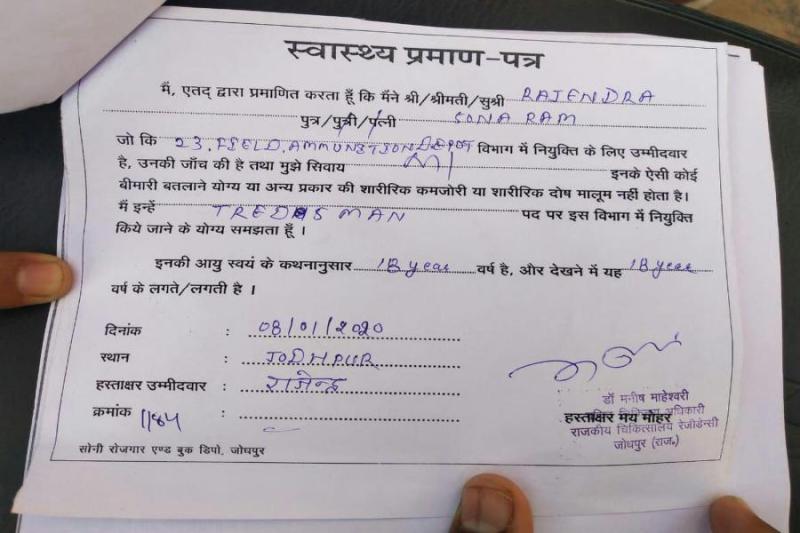 स्वास्थ्य प्रमाण-पत्र
मैं, एतद् द्वारा प्रमाणित करता हूँ कि मैने श्री/श्रीमती/सुश्री RAJENDRA
पुत्र/पुत्री/पत्नी SONA RAM
जो कि 23, FIELD, AMMUNITION DEPOT विभाग में नियुक्ति के लिए उम्मीदवार
है, उनकी जाँच की है तथा मुझे सिवाय इनके ऐसी कोई
बीमारी बतलाने योग्य या अन्य प्रकार की शारीरिक कमजोरी या शारीरिक दोष मालूम नहीं होता है।
मैं इन्हें TREDSMAN पद पर इस विभाग में नियुक्ति
किये जाने के योग्य समझता हूँ ।
इनकी आयु स्वयं के कथनानुसार 18 year वर्ष है, और देखने में यह 18 year
वर्ष के लगते/लगती है ।
दिनांक : 08/01/2020
स्थान : JODHPUR
हस्ताक्षर उम्मीदवार : राजेन्द्र
क्रमांक 1184 :
डॉ मनीष माहेश्वरी
चिकित्सा अधिकारी
हस्ताक्षर मय मोहर
राजकीय चिकित्सालय रेजीडेन्सी
जोधपुर (राज०)
सोनी रोजगार एण्ड बुक डिपो, जोधपुर